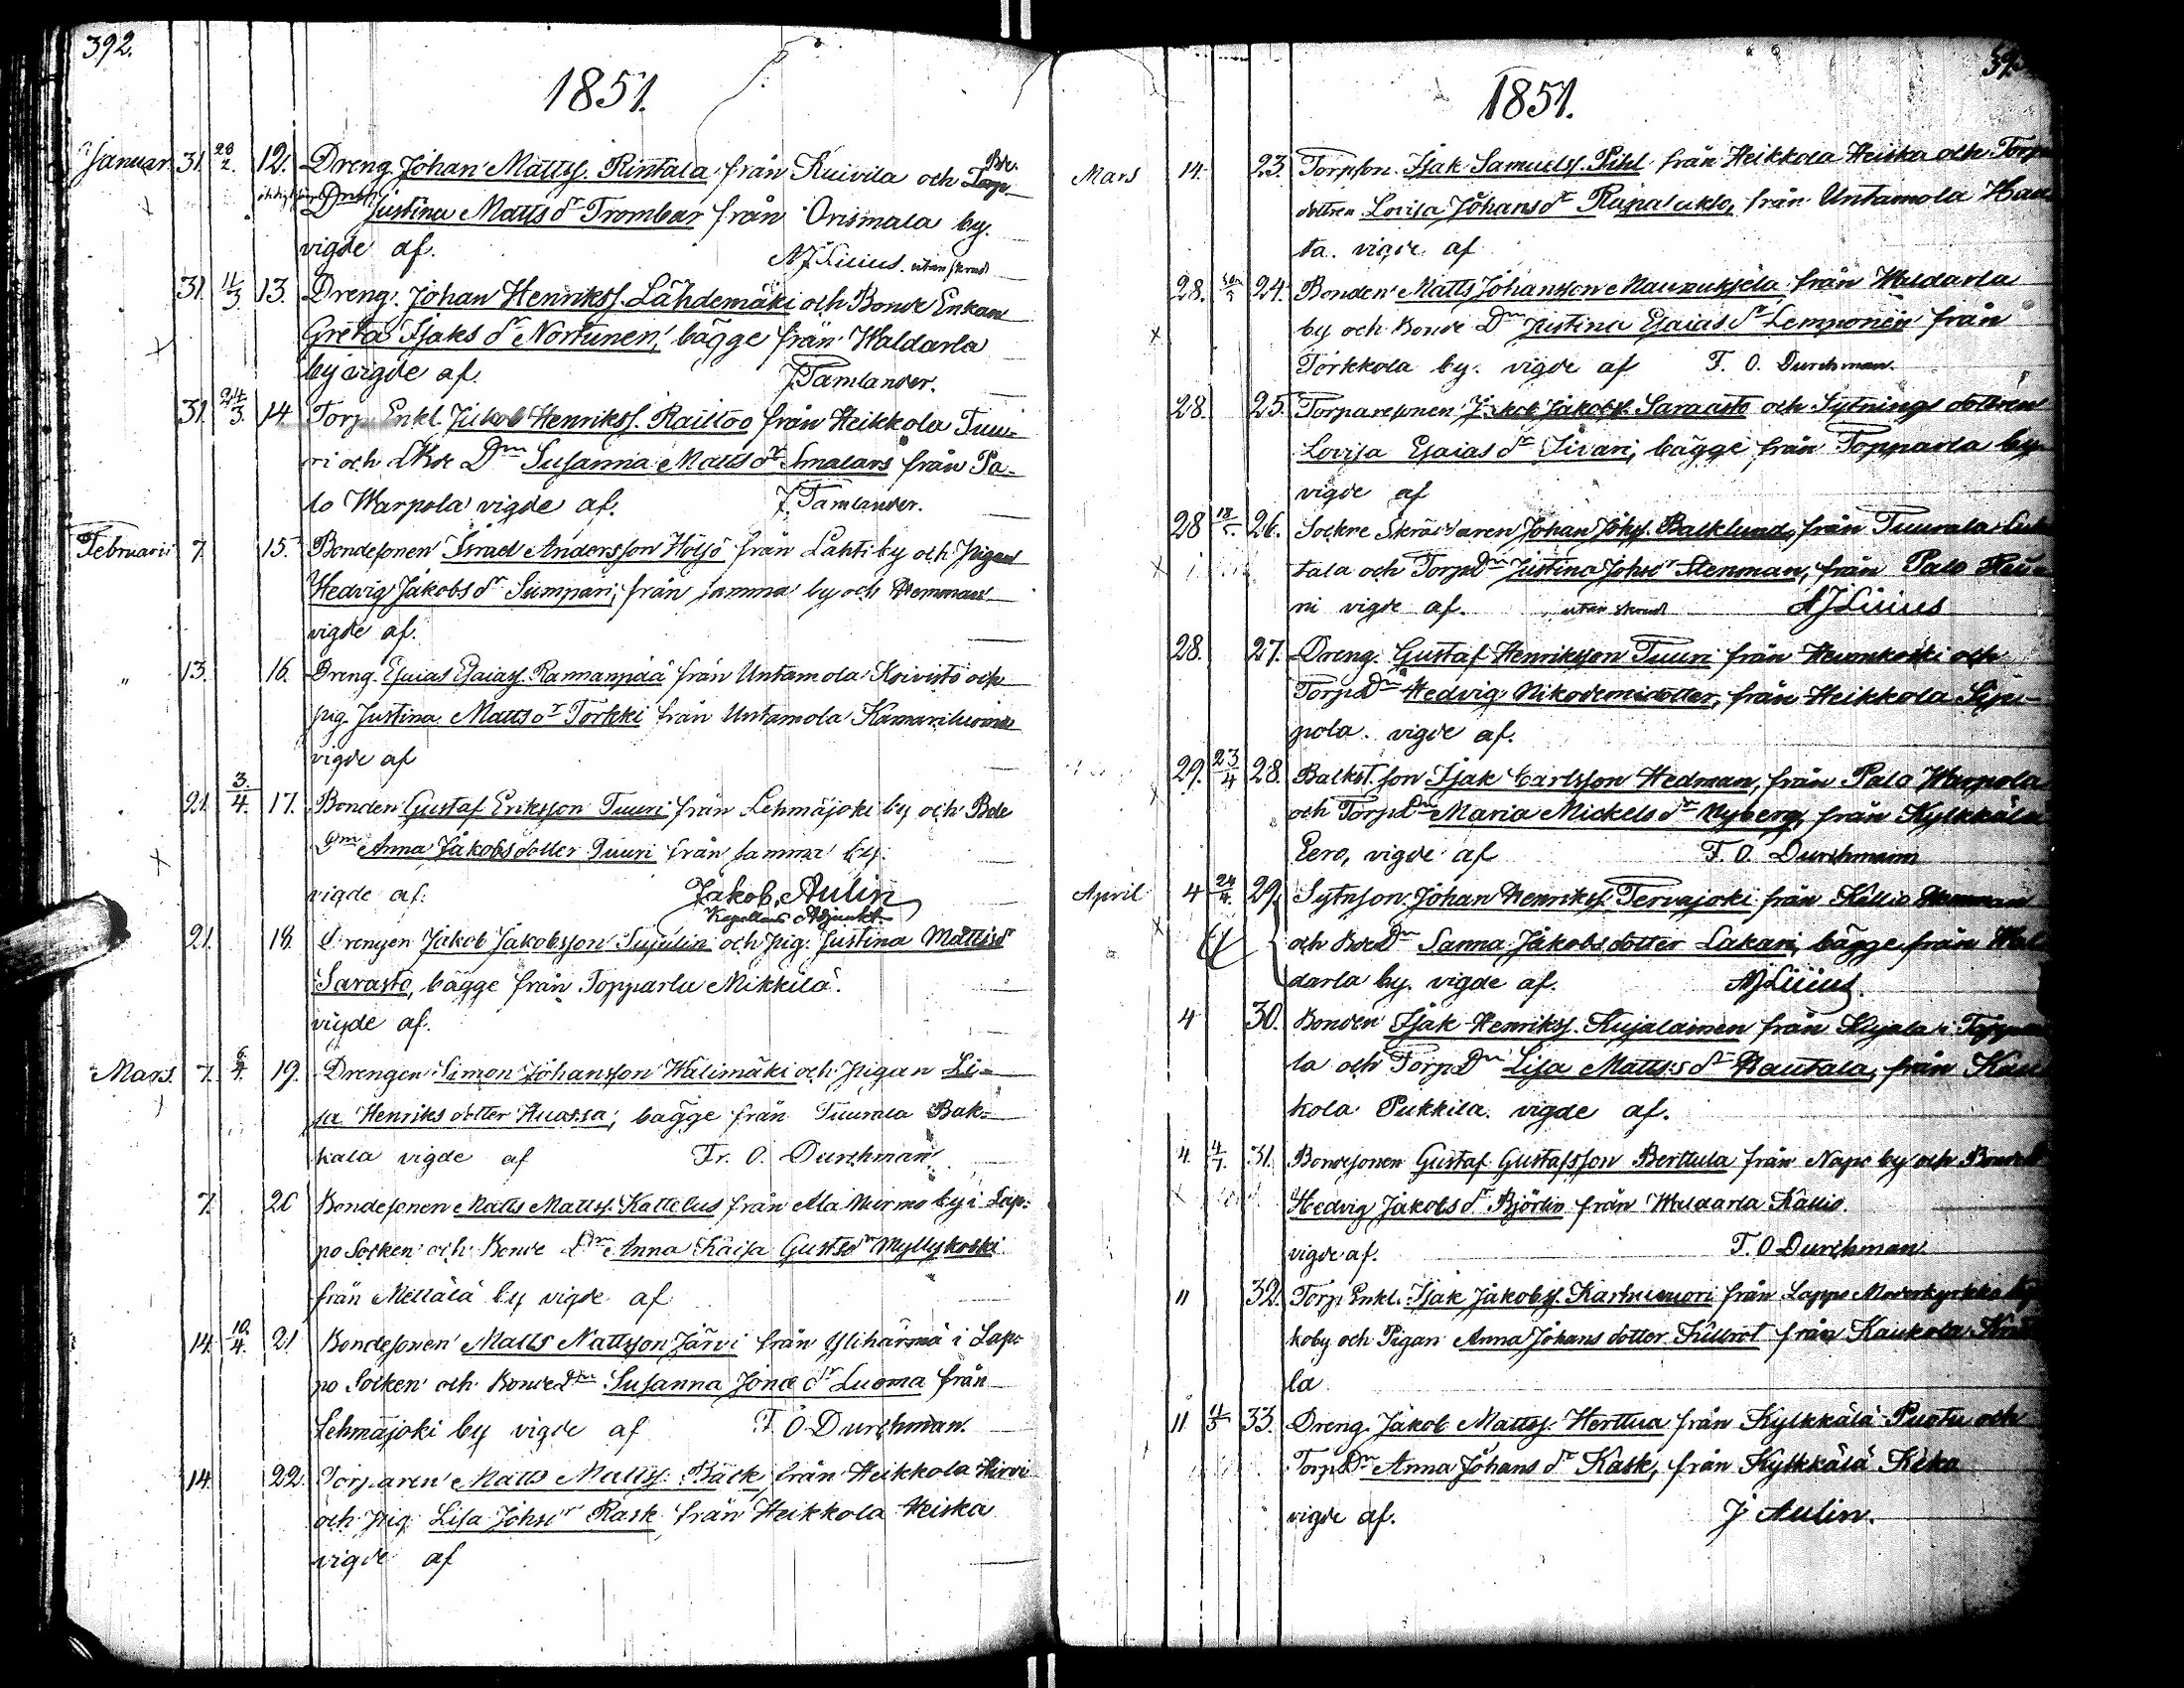 392.
1851.
Januar. 31. 28/2. 12. Dreng Johan Mattss. Rintala från Kuivila och Torp Bde.
Dm Justina Matts dr Trombar från Orismala by.
vigde af. A J Liius. utan skrud
31. 11/3. 13. Dreng. Johan Henrikss. Lähdemäki och Bonde Enkan
Greta Isaks dr Nortunen, bägge från Waldarla
by vigde af. J Tamlander.
31. 24/3. 14. Torp. Enkl. Jakob Henrikss. Railloo från Heikkola Tuu-
ri och Dm Susanna Matts dr Smalars från Pa-
lo Warpola vigde af. J. Tamlander.
Februarii 7. 15. Bondesonen Israel Andersson Höljö från Lahti by och Pigan
Hedvig Jakobs dr Sumpari, från samma by och Hemman
vigde af.
" 13. 16. Dreng. Esaias Esaiass. Rannanpää från Untamola Koivisto och
pig. Justina Matts dr Torkki från Untamola
vigde af
21. 3/4. 17. Bonden Gustaf Eriksson Tuuri från Lehmäjoki by och Bde
Dm Anna Jakobsdotter Tuuri från samma by.
vigde af. Jakob Aulin
Kapellans Adjunkt.
21. 18. Drengen Jakob Jakobsson Sujulin och pig. Justina Mattsdr
Sarasto, bägge från Topparla Mikkilä.
vigde af.
Mars. 7. 6/4. 19. Drengen Simon Johansson Walimäki och pigan Li-
sa Henriks dotter Huassa, bägge från Tuurala Bak-
kala vigde af Fr. O. Durchman
7. 20 Bondesonen Matts Mattss. Kattelus från Ala Nurmo by i Lap-
po Socken och Bonde Dm Anna Kaisa Gustsdr Myllykoski
från Mellälä by vigde af
14. 10/4. 21 Bondesonen Matts Mattsson Järvi från Ylihärmä i Lap-
po Socken och Bonde Dm Susanna Jona dr Luoma från
Lehmäjoki by vigde af F. O Durchman.
14. 22. Torparen Matts Mattss. Bäck, från Heikkola Hirvi
och pig. Lisa Johsdr Rask från Heikkola Heiska
vigde af
1851.
Mars 14. 23. Torpson. Isak Samuelss. Pihl från Heikkola Heiska och Torp
dottren Lovisa Johans dr Rupaluklo, från Untamola
ta. vigde af
28. 24. Bonden Matts Johansson Maunuksela från Waldarla
by och Bonde Dm Justina Esaias dr Lemponen från
Torkkola by. vigde af F. O. Durchman.
28. 25. Torparesonen Jakob Jakobss. Saraasto och Sytnings dottren
Lovisa Esaias dr Sivari, bägge från Topparla by
vigde af
28 18/5. 26. Sockne Skräddaren Johan Johss. Backlund, från Tuurala
tala och TorpDm Justina Johsdr Stenman, från Palo
ni vigde af. utan skrud A J Liius
28. 27. Dreng. Gustaf Henriksson Tuuri från och
TorpDm Hedvig Nikodemidotter, från Heikkola
pola. vigde af.
29. 23/4 28. Isak Carlsson Hedman, från Palo Warpola
och TorpDm Maria Mickels dr Nyberg, från Kylkkälä
Eero, vigde af F. O. Durchman
April 4 24/4. 29. Sytnson. Johan Henrikss. Tervajoki från Kallio Hemman
och BdeDm Sanna Jakobs dotter Lakari, bägge från Wal
darla by. vigde af. A J Liius.
4 30. Bonden Isak Henrikss. Kujalainen från i
la och TorpDm Lisa Mattss dr Rautala, från
kola Pukkila. vigde af.
4. 4/7. 31. Bondesonen Gustaf Gustafsson Berttula från Napo by och Bonde
Hedvig Jakobs dr Björlin från Waldarla Kallio.
vigde af. F. O Durchman
11 32. Torp Enkl. Isak Jakobss. Karhuvuori från Lappo Moderkyrka
koby och Pigan Anna Johans dotter från Kaukola
la
11 33. Dreng. Jakob Mattss. Herttua från Kylkkälä Puotu och
TorpDm Anna Johans dr Kask, från Kylkkälä Keko
vigde af. J Aulin.